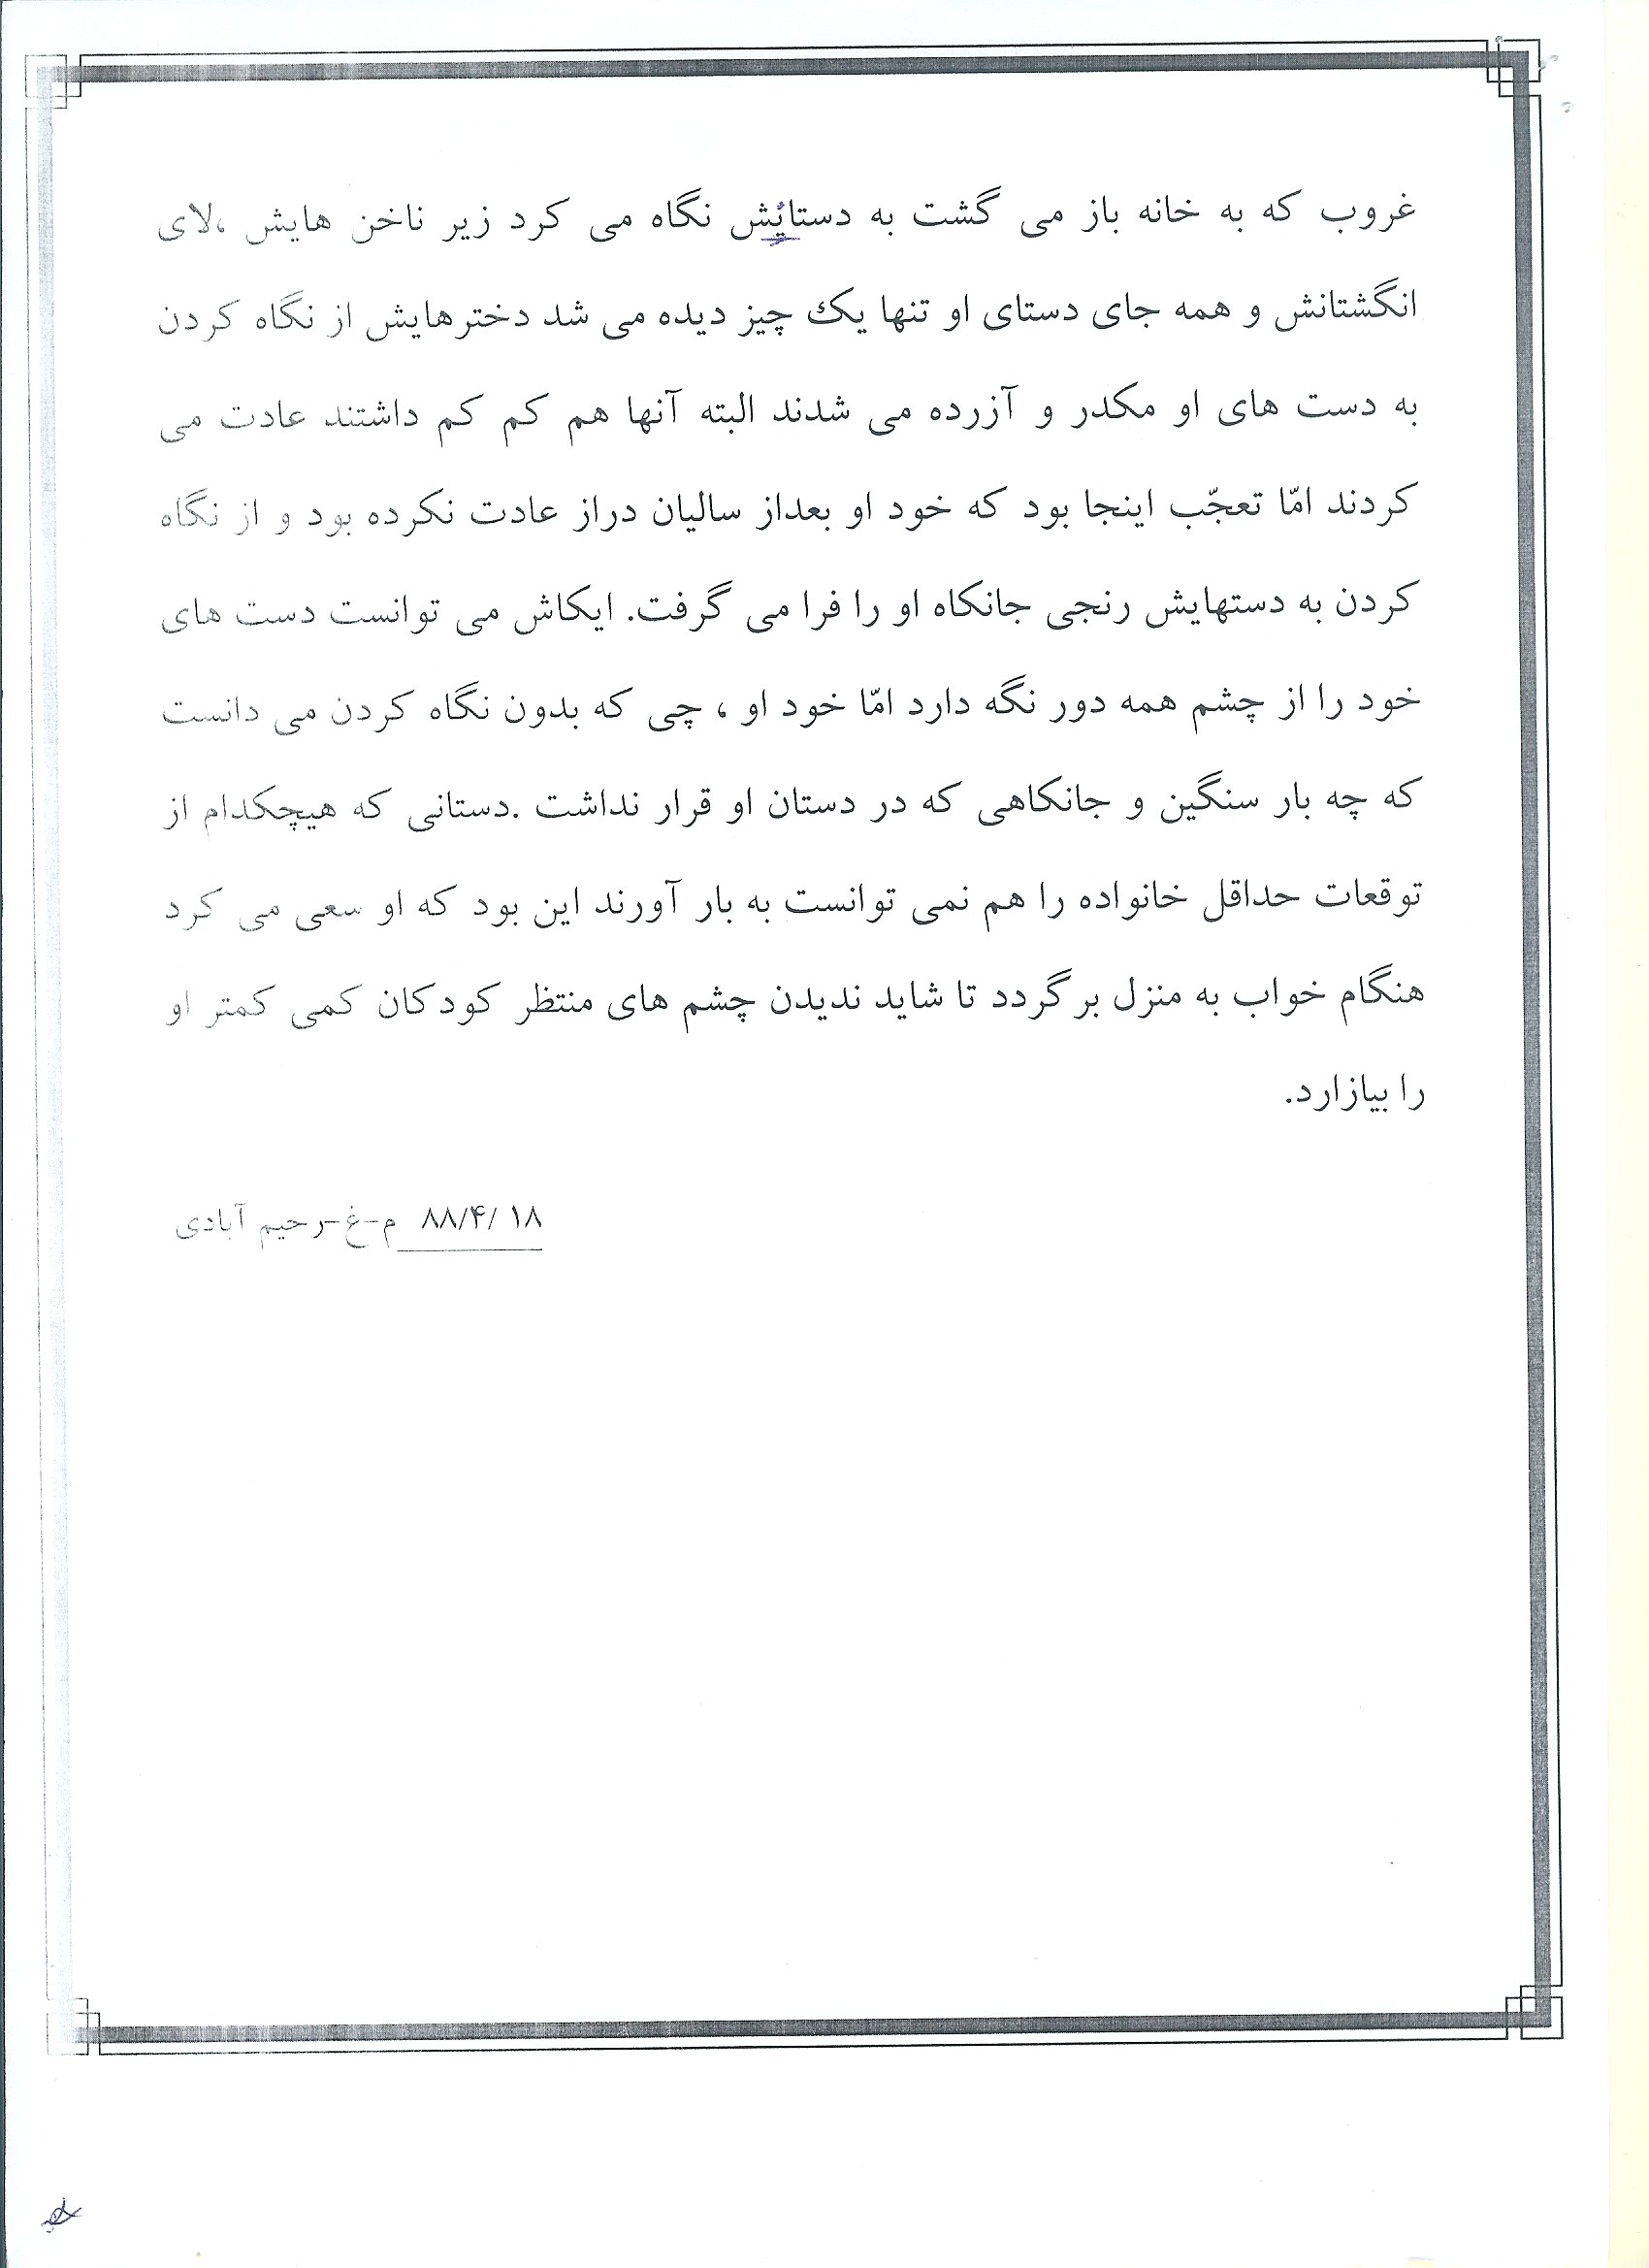 غروب که به خانه باز می گشت به دستانش نگاه می کرد زیر ناخن هایش ،لای
انگشتانش و همه جای دستای او تنها یک چیز دیده می شد دخترهایش از نگاه کردن
به دست های او مکدر و آزرده می شدند البته آنها هم کم کم داشتند عادت می
کردند امّا تعجّب اینجا بود که خود او بعداز سالیان دراز عادت نکرده بود و از نگاه
کردن به دستهایش رنجی جانکاه او را فرا می گرفت. ایکاش می توانست دست های
خود را از چشم همه دور نگه دارد امّا خود او ، چی که بدون نگاه کردن می دانست
که چه بار سنگین و جانکاهی که در دستان او قرار نداشت .دستانی که هیچکدام از
توقعات حداقل خانواده را هم نمی توانست به بار آورند این بود که او سعی می کرد
هنگام خواب به منزل برگردد تا شاید ندیدن چشم های منتظر کودکان کمی کمتر او
را بیازارد.
۸۸/۴/۱۸ م-غ-رحیم آبادی